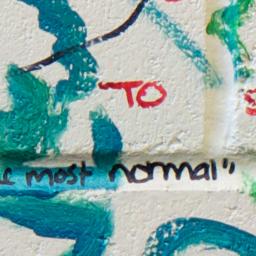 TO
most normal"